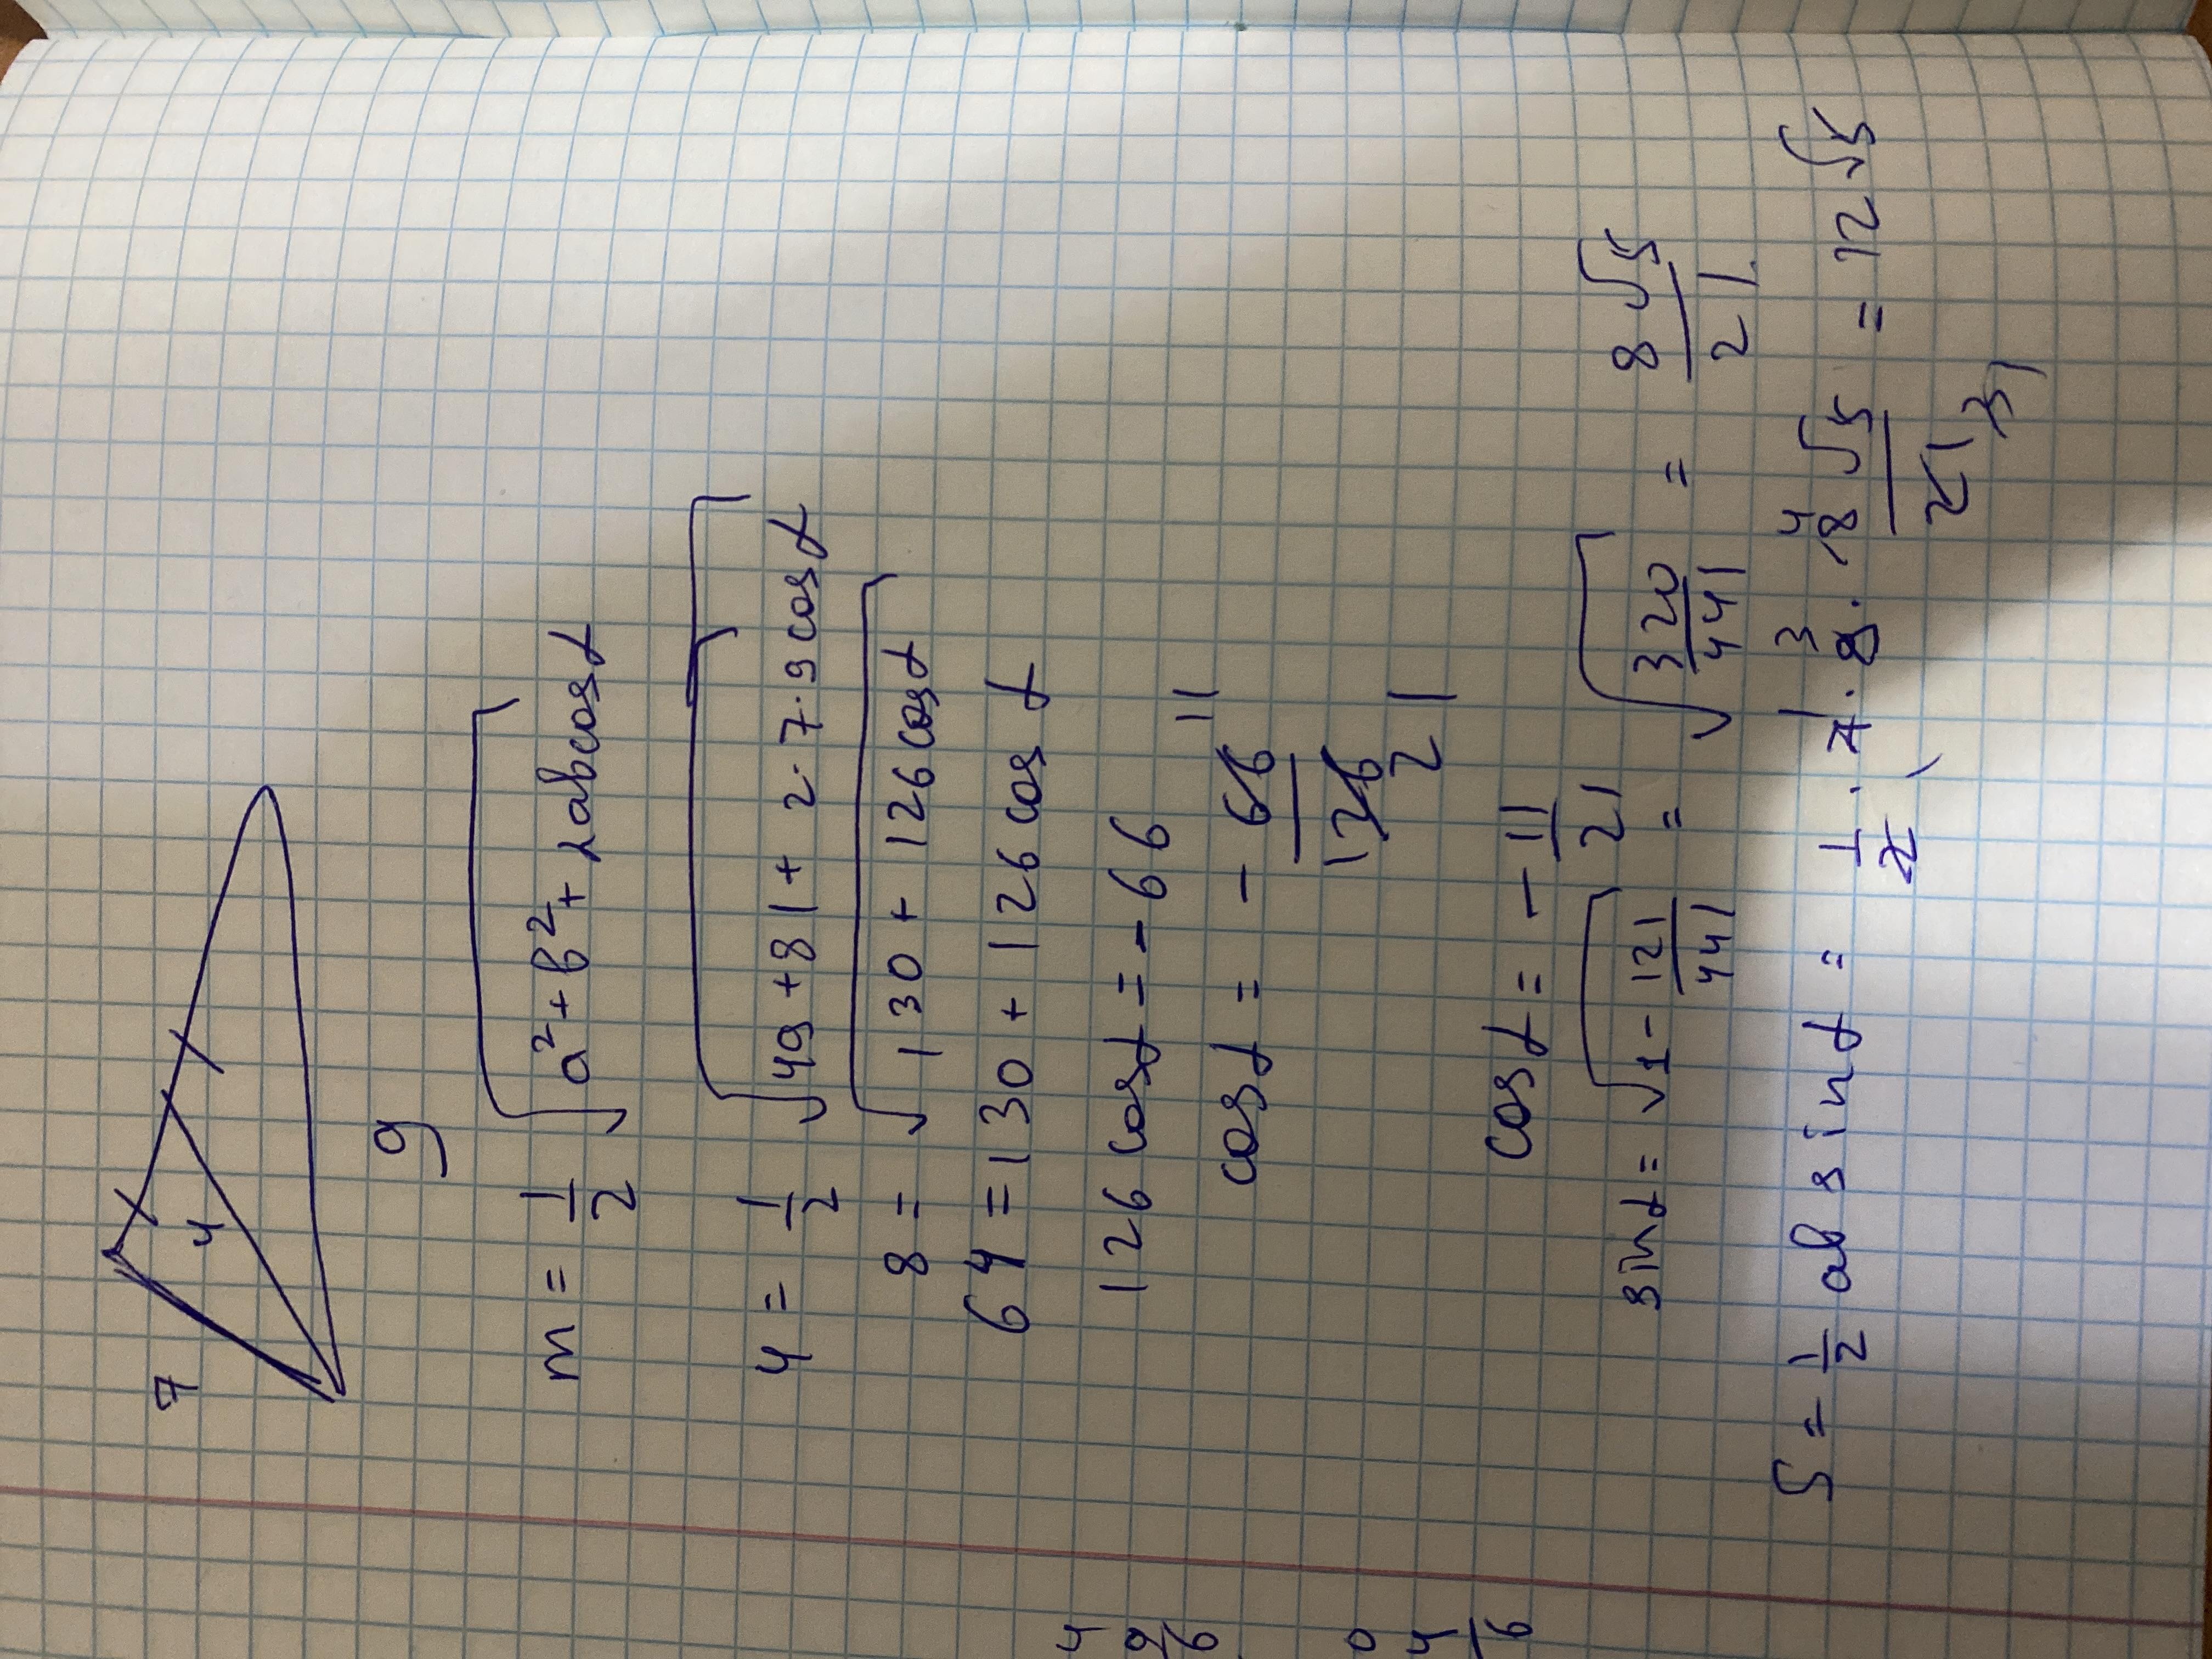 7
4
9
m = 1/2 √(a² + b² + 2abcosα)
4 = 1/2 √(49 + 81 + 2·7·9cosα)
8 = √(130 + 126cosα)
64 = 130 + 126cosα
126cosα = -66
cosα = - 66/126 11 21
cosα = - 11/21
sinα = √(1 - 121/441) = √(320/441) = 8√5/21
S = 1/2 ab sinα = 1/2 · 7 · 9 · 8√5/21 = 12√5
1 1 3 4 3 1
4
9
6
0
4
6